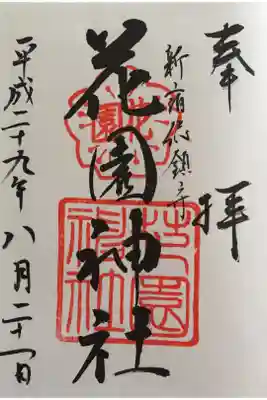 奉拝
新宿総鎮守
花園神社
平成二十九年八月二十一日
花園神社